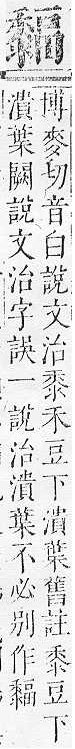 䵗
博麥切音白說文治黍禾豆下潰葉舊註黍豆下
潰葉闕說文治字誤一說治潰葉不必別作䵗